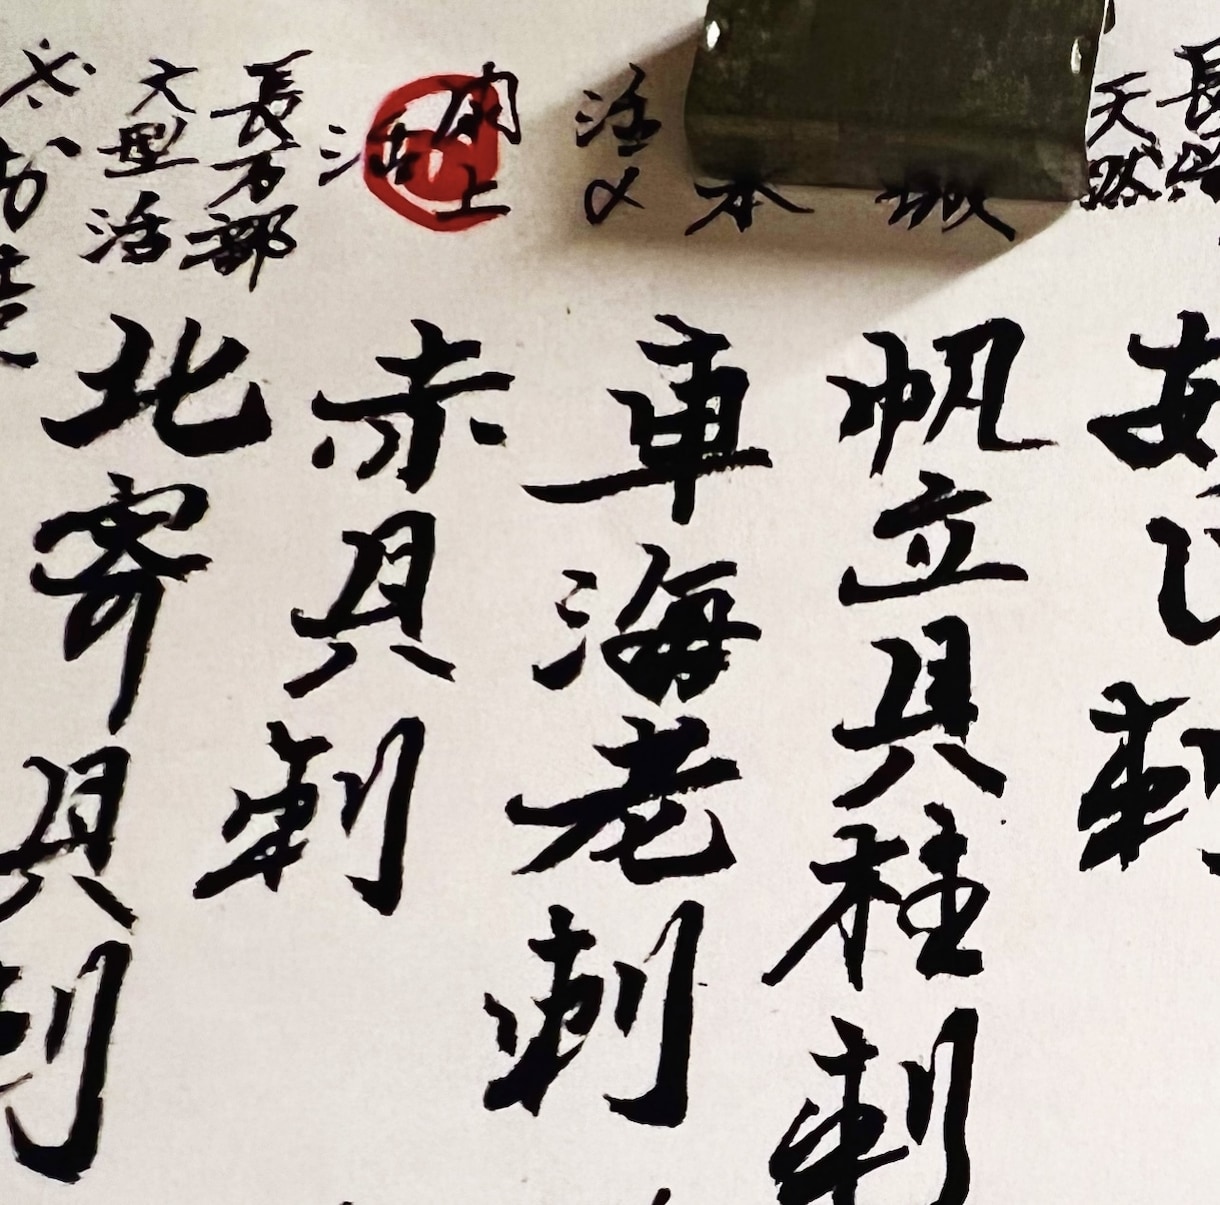 長崎
天然
あじ刺
城
帆立貝柱刺
本
活〆
車海老刺
閖上
活
赤貝刺
長万部
大型活
北寄貝刺